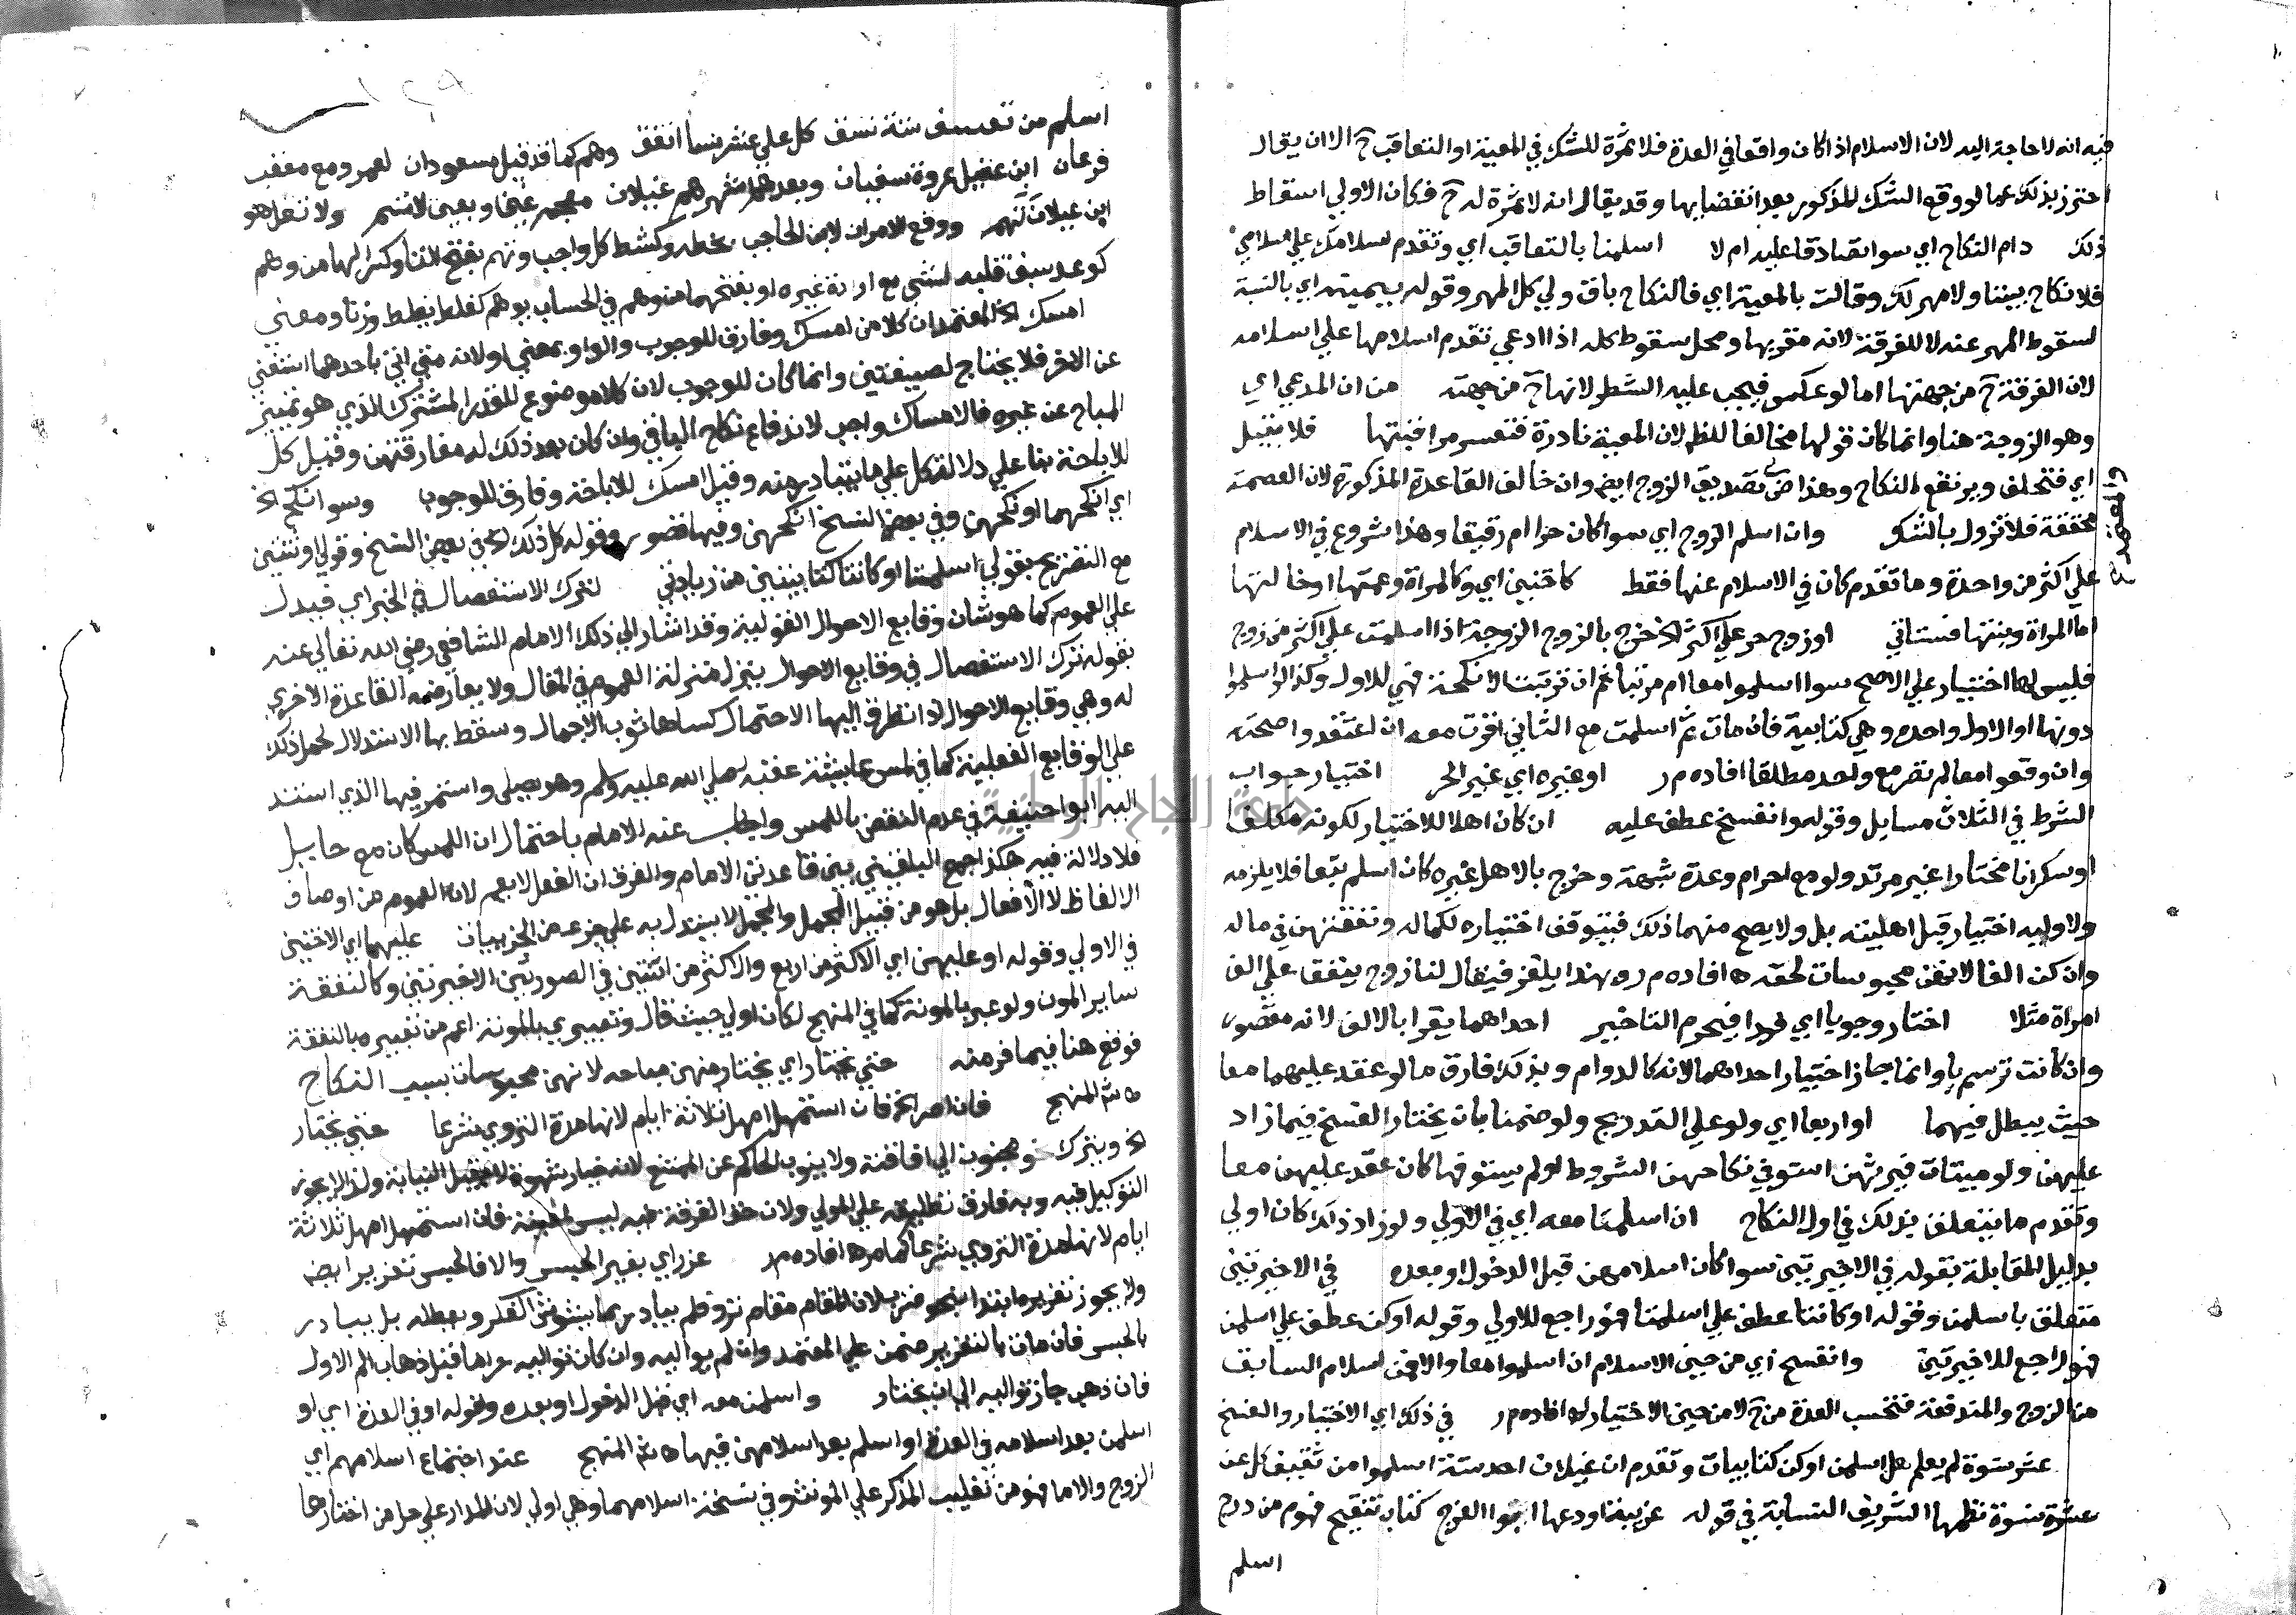 فيه انه لا حاجة اليه لان الاسلام اذا كان واقعا في العدة فلا ثمرة للشك في المعية او التعاقب ح الا ان يقال
احترز بذلك عما لو وقع الشك المذكور بعد انقضايها وقد يقال انه لا ثمرة له ح فكان الاولي اسقاط
ذلك دام النكاح اي سوا تصادقا عليه ام لا اسلمنا بالتعاقب اي وتقدم اسلامك علي اسلامي
فلا نكاح بيننا ولا مهر لك وقالت بالمعية اي فالنكاح باق ولي كل المهر وقوله بيمينه اي بالنسبة
لسقوط المهر عنه لا للفرقة لانه مقر بها ومحل سقوط كله اذا ادعي تقدم اسلامها علي اسلامه
لان الفرقة ح من جهتها اما لو عكس فيجب عليه الشطر لانها ح من جهته من ان المدعي اي
وهو الزوجة هنا وانما كان قولها مخالفا للظ لان المعية نادرة فتعسر مراقبتها فلا يقبل
اي فتحلف ويرتفع النكاح وهذا تصديق الزوج ايض وان خالف القاعدة المذكورة لان العصمة
محققة فلا تزول بالشك وان اسلم الزوج اي سوا كان حرا ام رقيقا وهذا شروع في الاسلام
علي اكثر من واحدة وما تقدم كان في الاسلام عنها فقط كاختين اي وكالمراة وعمتها او خالتها
اما المراة وبنتها فستاتي او زوج حر علي اكثر الخ خرج بالزوج الزوجة اذا اسلمت علي اكثر من زوج
فليس لها اختيار علي الاصح سوا اسلموا معا ام مرتبا ثم ان ترتبت الانكحة فهي للاول وكذا لو اسلموا
دونها او الاول وحده وهي كتابية فان مات ثم اسلمت مع الثاني اقرت معه ان اعتقدوا صحته
وان وقعوا معا لم تقر مع واحد مطلقا افاده م ر او غيره اي غير الحر اختيار جواب
الشرط في الثلاث مسايل وقوله وانفسخ عطف عليه ان كان اهلا للاختيار لكونه مكلفا
او سكرانا مختارا غير مرتد ولو مع احرام وعدة شبهة وخرج بالاهل غيره كان اسلم تبعا فلا يلزمه
ولا وليه اختيار قبل اهليته بل ولا يصح منهما ذلك فيتوقف اختياره لكماله ونفقتهن في ماله
وان كن الفا لانهن محبوسات لحقه ه افاده م ر وبهذا يلغز فيقال لنا زوج ينفق علي الف
امراة مثلا اختار وجوبا اي فورا فيحرم التاخير احداهما يقرا بالالف لانه مقصور
وان كانت ترسم يا وانما جاز اختيار احداهما لانه كالدوام وبذلك فارق ما لو عقد عليهما معا
حيث يبطل فيهما او اربعا اي ولو علي التدريج ولو ضمنا بان يختار الفسخ فيما زاد
عليهن ولو ميتات فيرثهن استوفي نكاحهن الشروط او لم يستوفها كان عقد عليهن معا
وتقدم ما يتعلق بذلك في اول النكاح ان اسلمتا معه اي في الاولي ولو زاد ذلك كان اولي
بدليل المقابلة بقوله في الاخيرتين سوا كان اسلامهن قبل الدخول او بعده في الاخيرتين
متعلق باسلمن وقوله او كانتا عطف علي اسلمتا فهو راجع للاولي وقوله او كن عطف علي اسلمن
فهو راجع للاخيرتين وانفسخ اي من حين الاسلام ان اسلموا معا والا فمن اسلام السابق
من الزوج والمندفعة فتحسب العدة من ح لا من حين الاختيار اه افاده م ر في ذلك اي الاختيار والفسخ
عشر نسوة لم يعلم هل اسلمن او كن كتابيات وتقدم ان غيلان احد ستة اسلموا من ثقيف كل عن
عشرة نسوة نظمها الشريف النسابة في قوله غريبة اودعها ابوا الفرج كتاب تنقيح فهوم من درج
اسلم
والمعتمد
اسلم من ثقيف ستة نسق كل علي عشر نسا اتفق وهم كما قد قيل مسعودان لعمرو ومع معقب
فرعان ابن عقيل عروة سفيان وبعدهم اشهرهم غيلان
ابن غيلان ووقع الامران لابن الحاجب بخطه وكشط كل واجب
امسك الخ المعتمد ان كلا من امسك وفارق للوجوب والواو بمعني او لانه متي اتي باحدهما استغني
عن الاخر فلا يحتاج لصيغتين وانما كان للوجوب لان كلا موضوع للقدر المشترك الذي هو تمييز
المباح عن غيره فالامساك واجب لاندفاع نكاح الباقي وان كان بعد ذلك له مفارقتهن وقيل كل
للاباحة بنا علي دلالة كل علي ما يتبادر منه وقيل امسك للاباحة وفارق للوجوب وسوا نكح الخ
اي انكحهما او نكحهن وفي بعض النسخ انكحهن وفيها قصور وقوله كل ذلك الخ في بعض النسخ وقولي او ثنتين
مع التصريح بقولي اسلمتا او كانتا كتابيتين من زيادتي لترك الاستفصال في الخبر اي فيدل
علي العموم كما هو شان وقايع الاحوال القولية وقد اشار الي ذلك الامام الشافعي رضي الله تعالي عنه
بقوله ترك الاستفصال في وقايع الاحوال ينزل منزلة العموم في المقال ولا يعارضه القاعدة الاخري
له وهي وقايع الاحوال اذا تطرق اليها الاحتمال كساها ثوب الاجمال وسقط بها الاستدلال لحمل ذلك
علي الوقايع الفعلية كما في لمس عايشة عقبه صلي الله عليه وسلم وهو يصلي واستمر فيها الذي استند
اليه ابوا حنيفة في عدم النقض باللمس واجاب عنه الامام باحتمال ان اللمس كان مع حايل
فلا دلالة فيه هكذا جمع البلقيني بين قاعدتي الامام والفرق ان الفعل لا يعم لان العموم من اوصاف
الالفاظ لا الافعال بل هو من قبيل المجمل والمجمل لا يستدل به علي جزء من الجزييات عليهما اي الاختين
في الاولي وقوله او عليهن اي الاكثر من اربع والاكثر من اثنتين في الصورتين الاخيرتين وكالنفقة
ساير المون ولو عبر بالمونة كما في المنهج لكان اولي حيث قال وتعبيري بالمونة اعم من تعبيره بالنفقة
فوقع هنا فيما فر منه حتي يختار اي يختار منهن مباحه لانهن محبوسات بسبب النكاح
ه ش المنهج فان اصر الخ فان استمهل امهل ثلاثة ايام لانها مدة التروي شرعا حتي يختار
الخ ويترك نحو مجنون الي افاقته ولا ينوب الحاكم عن الممتنع لانه خيار شهوة لا يقبل النيابة ولذا لا يجوز
التوكيل فيه وبه فارق تطليقه علي المولي ولان حق الفرقة فيه ليس لمعينة فان استمهل امهل ثلاثة
ايام لانها مدة التروي شرعا كما مر ه افاده م ر عزر اي بغير الحبس والا فالحبس تعزير ايض
ولا يجوز تعزيره ابتدا بنحو ضرب لان المقام مقام ترو فلم يبادر بما يشوش الفكر ويعطله بل يبادر
بالحبس فان مات بالتعزير ضمن علي المعتمد وان لم يواليه وان كان تواليه حراما قبل ذهاب الم الاول
فان ذهب جاز تواليه الي ان يختار واسلمن معه اي قبل الدخول او بعده وقوله او في العدة اي او
اسلمن بعد اسلامه في العدة او اسلم بعد اسلامهن فيها ه ش المنهج عند اجتماع اسلامهم اي
الزوج والاما فهو من تغليب المذكر علي المونث وفي نسخة اسلامهما وهي اولي لان المدار علي حل من اختارها